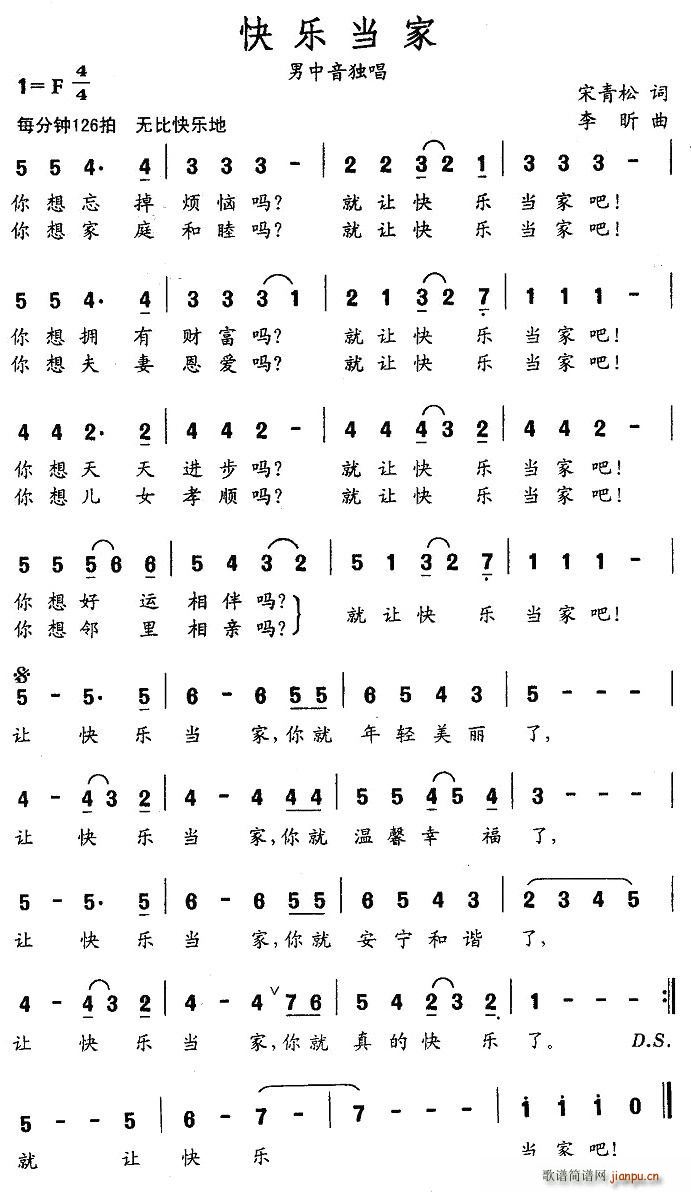 快乐当家
男中音独唱
1=F 4/4
宋青松 词
每分钟126拍 无比快乐地
李昕 曲
5 5 4· 4 | 3 3 3 - | 2 2 3 2 1 | 3 3 3 - |
你想忘掉烦恼吗？ 就让快乐当家吧！
你想家庭和睦吗？ 就让快乐当家吧！
5 5 4· 4 | 3 3 3 3 1 | 2 1 3 2 7 | 1 1 1 - |
你想拥有财富吗？ 就让快乐当家吧！
你想夫妻恩爱吗？ 就让快乐当家吧！
4 4 2· 2 | 4 4 2 - | 4 4 4 3 2 | 4 4 2 - |
你想天天进步吗？ 就让快乐当家吧！
你想儿女孝顺吗？ 就让快乐当家吧！
5 5 5 6 6 | 5 4 3 2 | 5 1 3 2 7 | 1 1 1 - |
你想好运相伴吗？
就让快乐当家吧！
你想邻里相亲吗？
5 - 5· 5 | 6 - 6 5 5 | 6 5 4 3 | 5 - - - |
让快乐当家，你就年轻美丽了，
4 - 4 3 2 | 4 - 4 4 4 | 5 5 4 5 4 | 3 - - - |
让快乐当家，你就温馨幸福了，
5 - 5· 5 | 6 - 6 5 5 | 6 5 4 3 | 2 3 4 5 |
让快乐当家，你就安宁和谐了，
4 - 4 3 2 | 4 - 4 ∨ 7 6 | 5 4 2 3 2 | 1 - - - :‖
让快乐当家，你就真的快乐了。 D.S.
5 - - 5 | 6 - 7 - | 7 - - - | i i i 0 ‖
就让快乐当家吧！
歌谱简谱网
jianpu.cn